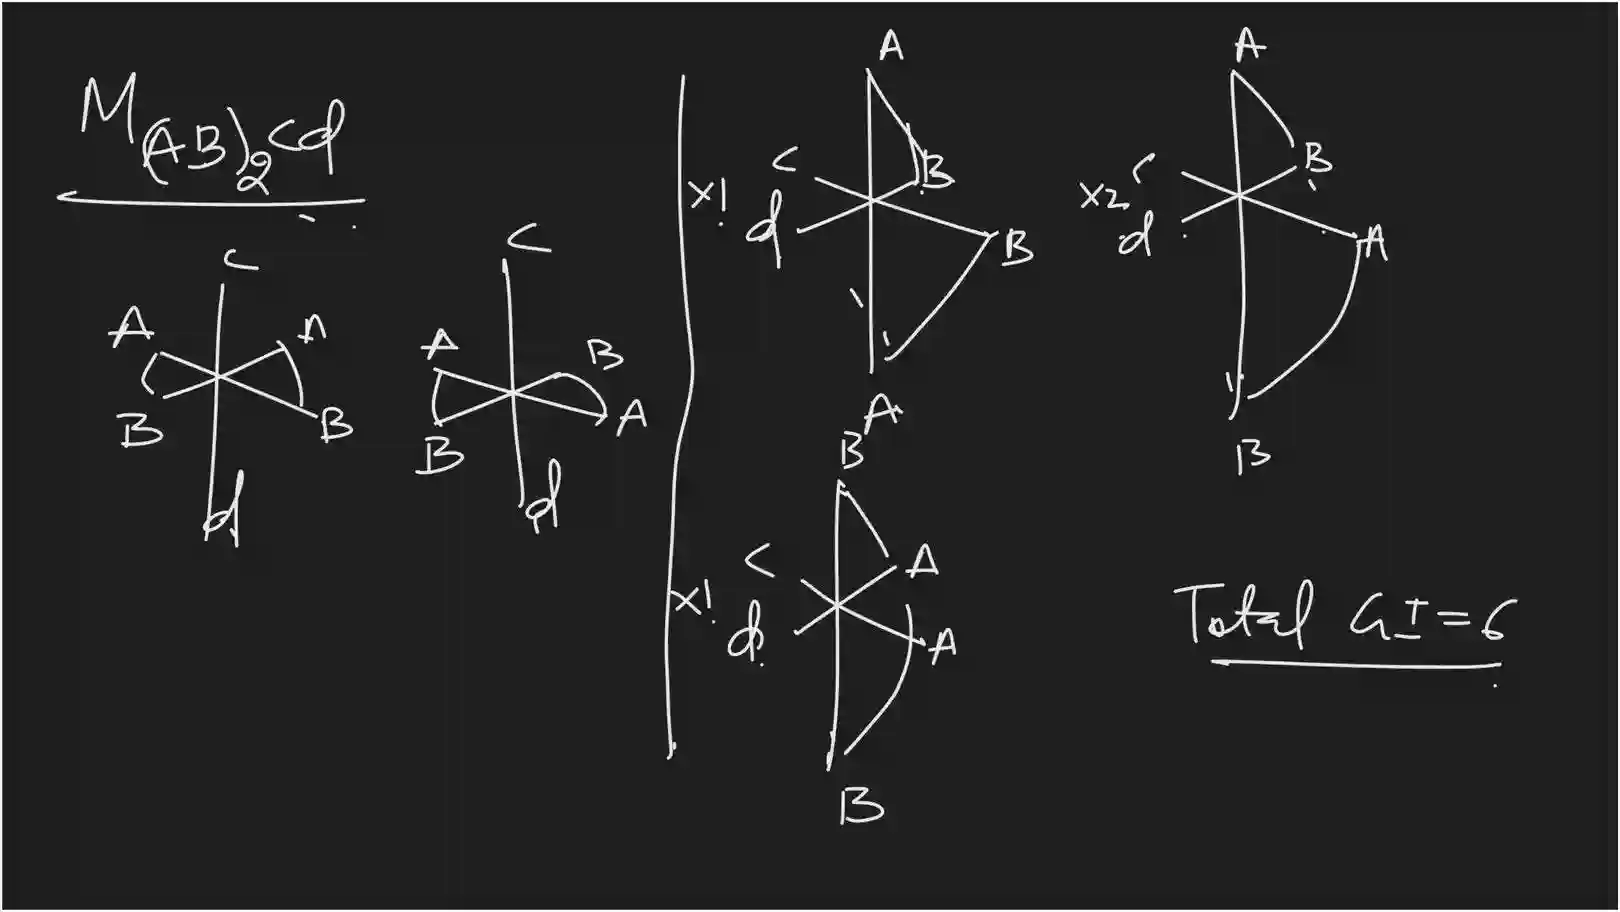 M(AB)2cd
C
A A
B B
d
C
A B
B A
d
x1
A
C B
d B
A
x2
A
C B
d A
B
x1
B
C A
d A
B
Total GI = 6